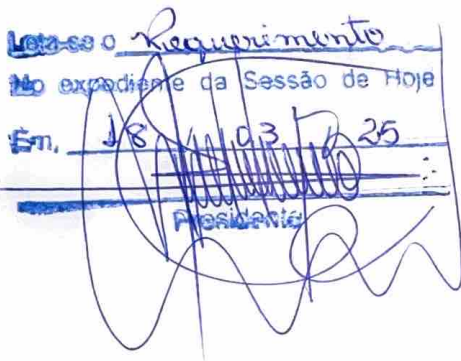 Leia-se o Requerimento
No expediente da Sessão de Hoje
Em, 18 / 03 / 25
Presidente